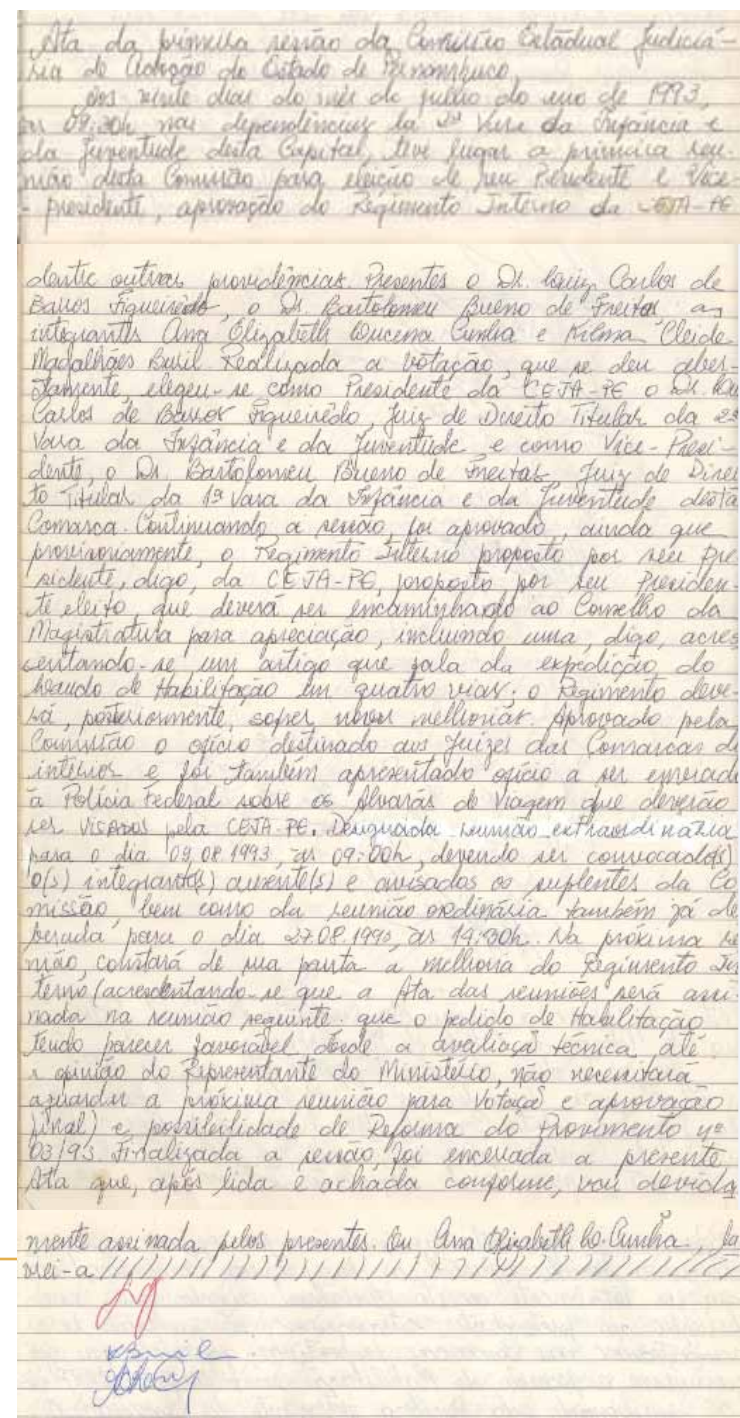 Ata da primeira sessão da Comissão Estadual Judiciá-
ria de Adoção do Estado de Pernambuco.
Aos vinte dias do mês de julho do ano de 1993,
às 09:30h nas dependências da 2ª Vara da Infância e
da Juventude desta Capital, teve lugar a primeira reu-
nião desta Comissão para eleição de seu Presidente e Vice-
-presidente, aprovação do Regimento Interno da CEJA-PE
dentre outras providências. Presentes o Dr. Luiz Carlos de
Barros Figueirêdo, o Dr. Bartolomeu Bueno de Freitas, as
integrantes Ana Elizabeth Lucena Cunha e Kilma Cleide
Magalhães Buril. Realizada a votação, que se deu aber-
tamente, elegeu-se como Presidente da CEJA-PE o Dr. Luiz
Carlos de Barros Figueirêdo, Juiz de Direito Titular da 2ª
Vara da Infância e da Juventude e como Vice-Presi-
dente, o Dr. Bartolomeu Bueno de Freitas Juiz de Direi
to Titular da 1ª Vara da Infância e da Juventude desta
Comarca. Continuando a sessão, foi aprovado, ainda que
provisoriamente, o Regimento Interno proposto por seu Pre
sidente, digo, da CEJA-PE, proposto por seu Presiden-
te eleito, que deverá ser encaminhado ao Conselho da
Magistratura para apreciação, incluindo uma, digo, acres
centando-se um artigo que fala da expedição do
Laudo de Habilitação em quatro vias; o Regimento deve-
rá, posteriormente, sofrer novas melhorias. Aprovado pela
Comissão o ofício destinado aos Juízes das Comarcas do
interior e foi também apresentado ofício a ser enviado
à Polícia Federal sobre os Alvarás de Viagem que deverão
ser VISADOS pela CEJA-PE. Designada reunião extraordinária
para o dia 09.08.1993, às 09:00h, devendo ser convocado(s)
o(s) integrante(s) ausente(s) e avisados os suplentes da Co
missão, bem como da reunião ordinária também já de
para o dia 27.08.1993, às 14:30h. Na próxima reu
nião, constará de sua pauta a melhoria do Regimento In
terno (acrescentando-se que a Ata das reuniões será assi
nada na reunião seguinte. que o pedido de Habilitação
tendo parecer favorável desde a avaliação técnica até
a opinião do Representante do Ministério, não necessitará
aguardar a próxima reunião para votação e aprovação
final) e possibilidade de Reforma do Provimento nº
03/93. Finalizada a sessão, foi encerrada a presente
Ata que, após lida e achada conforme, vai devida
mente assinada pelos presentes. Eu Ana Elizabeth L. Cunha, la
vrei-a